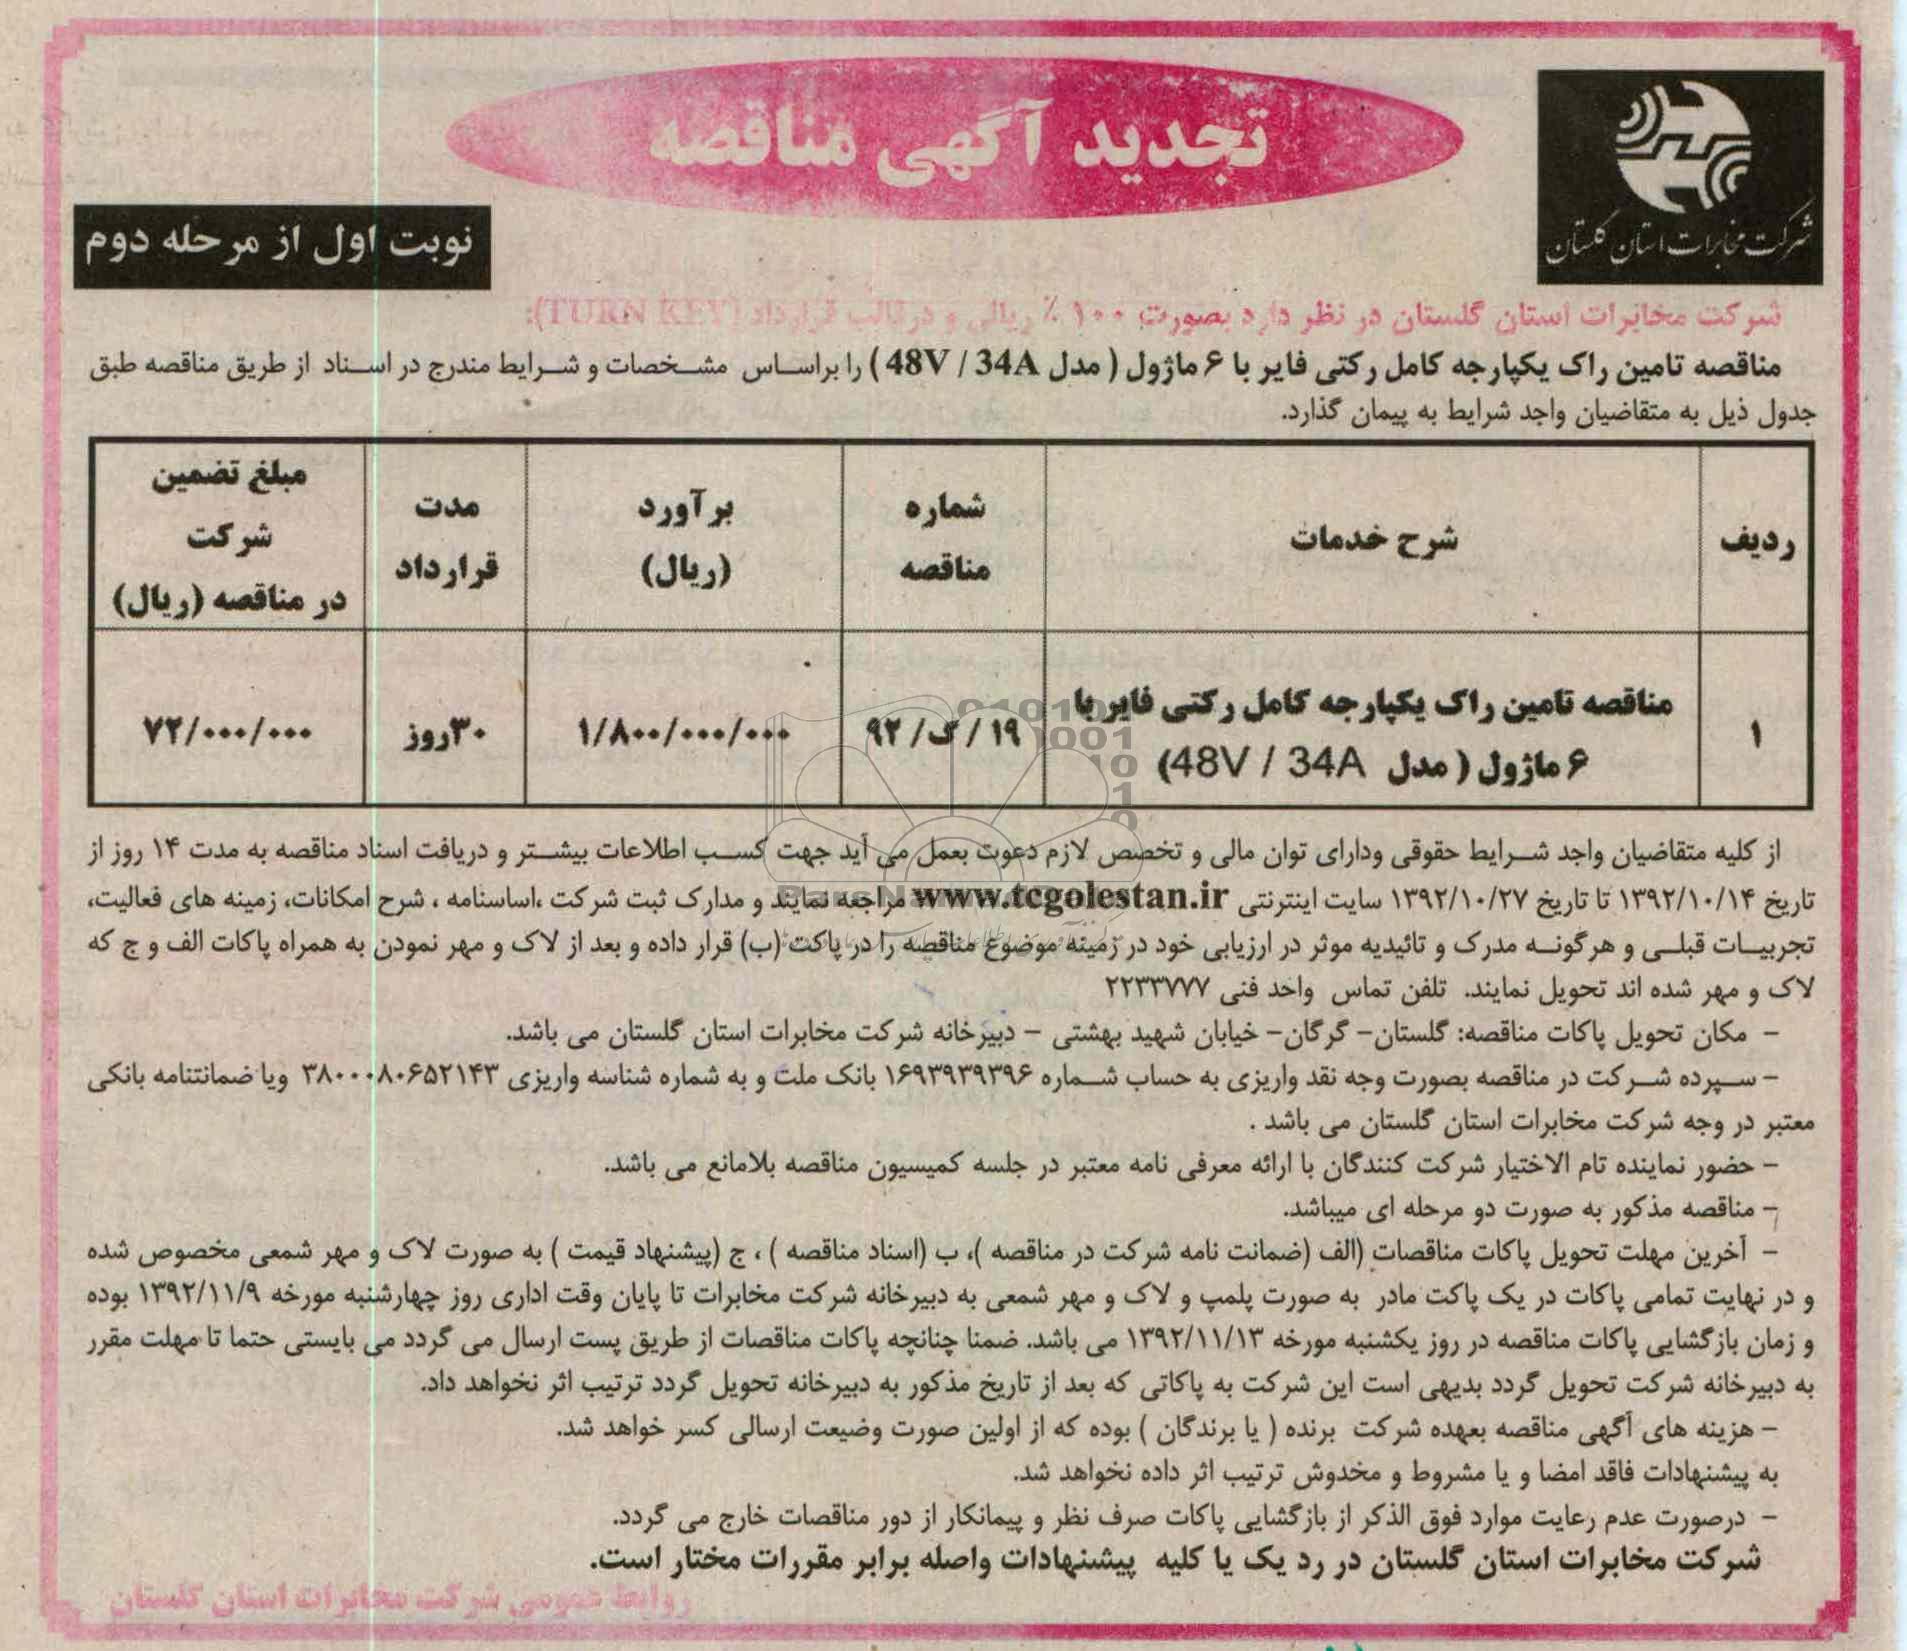 تجدید آگهی مناقصه
شرکت مخابرات استان گلستان
نوبت اول از مرحله دوم
شرکت مخابرات استان گلستان در نظر دارد بصورت ۱۰۰ ٪ ریالی و در قالب قرارداد (TURN KEY):
مناقصه تامین راک یکپارچه کامل رکتی فایر با ۶ ماژول ( مدل 48V / 34A ) را براساس مشخصات و شرایط مندرج در اسناد از طریق مناقصه طبق
جدول ذیل به متقاضیان واجد شرایط به پیمان گذارد.
ردیف | شرح خدمات | شماره مناقصه | برآورد (ریال) | مدت قرارداد | مبلغ تضمین شرکت در مناقصه (ریال)
۱ | مناقصه تامین راک یکپارچه کامل رکتی فایر با ۶ ماژول ( مدل 48V / 34A) | ۱۹ / گ/ ۹۲ | ۱/۸۰۰/۰۰۰/۰۰۰ | ۳۰روز | ۷۲/۰۰۰/۰۰۰
از کلیه متقاضیان واجد شرایط حقوقی ودارای توان مالی و تخصص لازم دعوت بعمل می آید جهت کسب اطلاعات بیشتر و دریافت اسناد مناقصه به مدت ۱۴ روز از
تاریخ ۱۳۹۲/۱۰/۱۴ تا تاریخ ۱۳۹۲/۱۰/۲۷ سایت اینترنتی www.tcgolestan.ir مراجعه نمایند و مدارک ثبت شرکت ،اساسنامه ، شرح امکانات، زمینه های فعالیت،
تجربیات قبلی و هرگونه مدرک و تائیدیه موثر در ارزیابی خود در زمینه موضوع مناقصه را در پاکت (ب) قرار داده و بعد از لاک و مهر نمودن به همراه پاکات الف و ج که
لاک و مهر شده اند تحویل نمایند. تلفن تماس واحد فنی ۲۲۳۳۷۷۷
– مکان تحویل پاکات مناقصه: گلستان– گرگان– خیابان شهید بهشتی – دبیرخانه شرکت مخابرات استان گلستان می باشد.
– سپرده شرکت در مناقصه بصورت وجه نقد واریزی به حساب شماره ۱۶۹۳۹۳۹۳۹۶ بانک ملت و به شماره شناسه واریزی ۳۸۰۰۰۸۰۶۵۲۱۴۳ ویا ضمانتنامه بانکی
معتبر در وجه شرکت مخابرات استان گلستان می باشد .
– حضور نماینده تام الاختیار شرکت کنندگان با ارائه معرفی نامه معتبر در جلسه کمیسیون مناقصه بلامانع می باشد.
– مناقصه مذکور به صورت دو مرحله ای میباشد.
– آخرین مهلت تحویل پاکات مناقصات (الف (ضمانت نامه شرکت در مناقصه )، ب (اسناد مناقصه ) ، ج (پیشنهاد قیمت ) به صورت لاک و مهر شمعی مخصوص شده
و در نهایت تمامی پاکات در یک پاکت مادر به صورت پلمپ و لاک و مهر شمعی به دبیرخانه شرکت مخابرات تا پایان وقت اداری روز چهارشنبه مورخه ۱۳۹۲/۱۱/۹ بوده
و زمان بازگشایی پاکات مناقصه در روز یکشنبه مورخه ۱۳۹۲/۱۱/۱۳ می باشد. ضمنا چنانچه پاکات مناقصات از طریق پست ارسال می گردد می بایستی حتما تا مهلت مقرر
به دبیرخانه شرکت تحویل گردد بدیهی است این شرکت به پاکاتی که بعد از تاریخ مذکور به دبیرخانه تحویل گردد ترتیب اثر نخواهد داد.
– هزینه های آگهی مناقصه بعهده شرکت برنده ( یا برندگان ) بوده که از اولین صورت وضیعت ارسالی کسر خواهد شد.
به پیشنهادات فاقد امضا و یا مشروط و مخدوش ترتیب اثر داده نخواهد شد.
– درصورت عدم رعایت موارد فوق الذکر از بازگشایی پاکات صرف نظر و پیمانکار از دور مناقصات خارج می گردد.
شرکت مخابرات استان گلستان در رد یک یا کلیه پیشنهادات واصله برابر مقررات مختار است.
روابط عمومی شرکت مخابرات استان گلستان